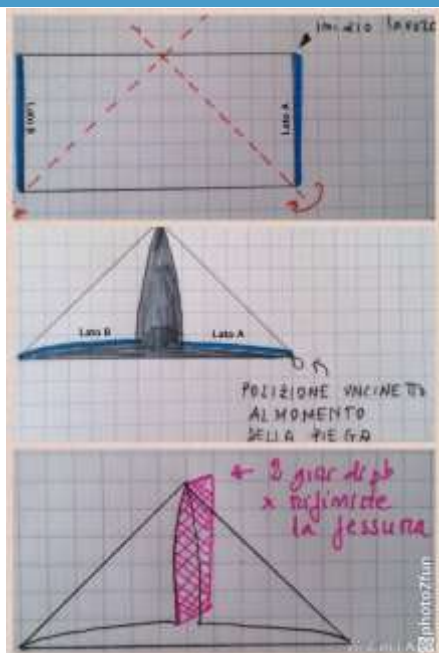 inizio lavoro
Lato B
Lato A
Lato B
Lato A
POSIZIONE UNCINETTO
AL MOMENTO
DELLA PIEGA
giri di pb
x rifinire
la fessura
photo2fun